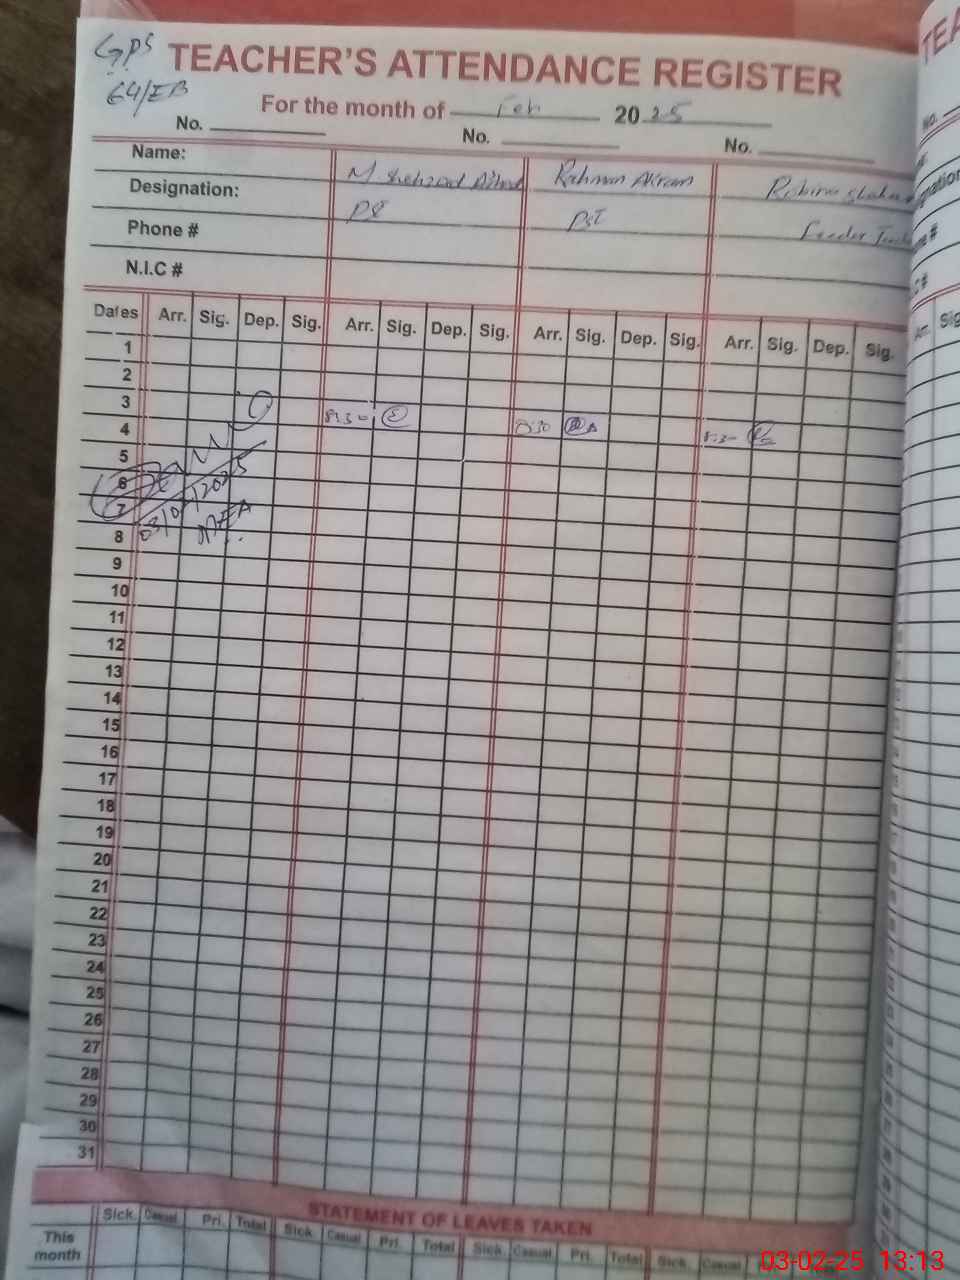 GPS
64/EB
TEACHER'S ATTENDANCE REGISTER
For the month of Feb 2025
No. No. No.
Name: M Shehzad Rahman Akram
Designation: PST
Phone #
N.I.C #
Dates Arr. Sig. Dep. Sig. Arr. Sig. Dep. Sig. Arr. Sig. Dep. Sig. Arr. Sig. Dep. Sig.
1
2
3 8:30 8:30 8:30
4
5
6
7
03/02/2025
8 MEA
9
10
11
12
13
14
15
16
17
18
19
20
21
22
23
24
25
26
27
28
29
30
31
STATEMENT OF LEAVES TAKEN
Sick. Casual Pri. Total Sick. Casual Pri. Total Sick. Casual Pri. Total Sick. Casual
This month
03-02-25 13:13